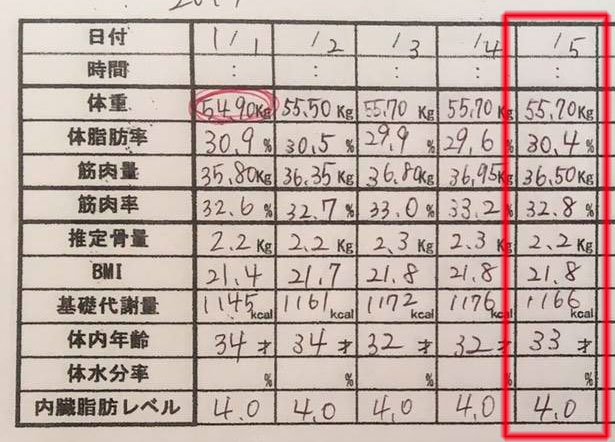 日付 1/1 /2 /3 1/4 1/5
時間 : : : : :
体重 54.90Kg 55.50Kg 55.70Kg 55.70Kg 55.70Kg
体脂肪率 30.9% 30.5% 29.9% 29.6% 30.4%
筋肉量 35.80Kg 36.35Kg 36.80Kg 36.95Kg 36.50Kg
筋肉率 32.6% 32.7% 33.0% 33.2% 32.8%
推定骨量 2.2Kg 2.2Kg 2.3Kg 2.3Kg 2.2Kg
BMI 21.4 21.7 21.8 21.8 21.8
基礎代謝量 1145kcal 1161kcal 1172kcal 1176kcal 1166kcal
体内年齢 34才 34才 32才 32才 33才
体水分率 % % % % %
内臓脂肪レベル 4.0 4.0 4.0 4.0 4.0